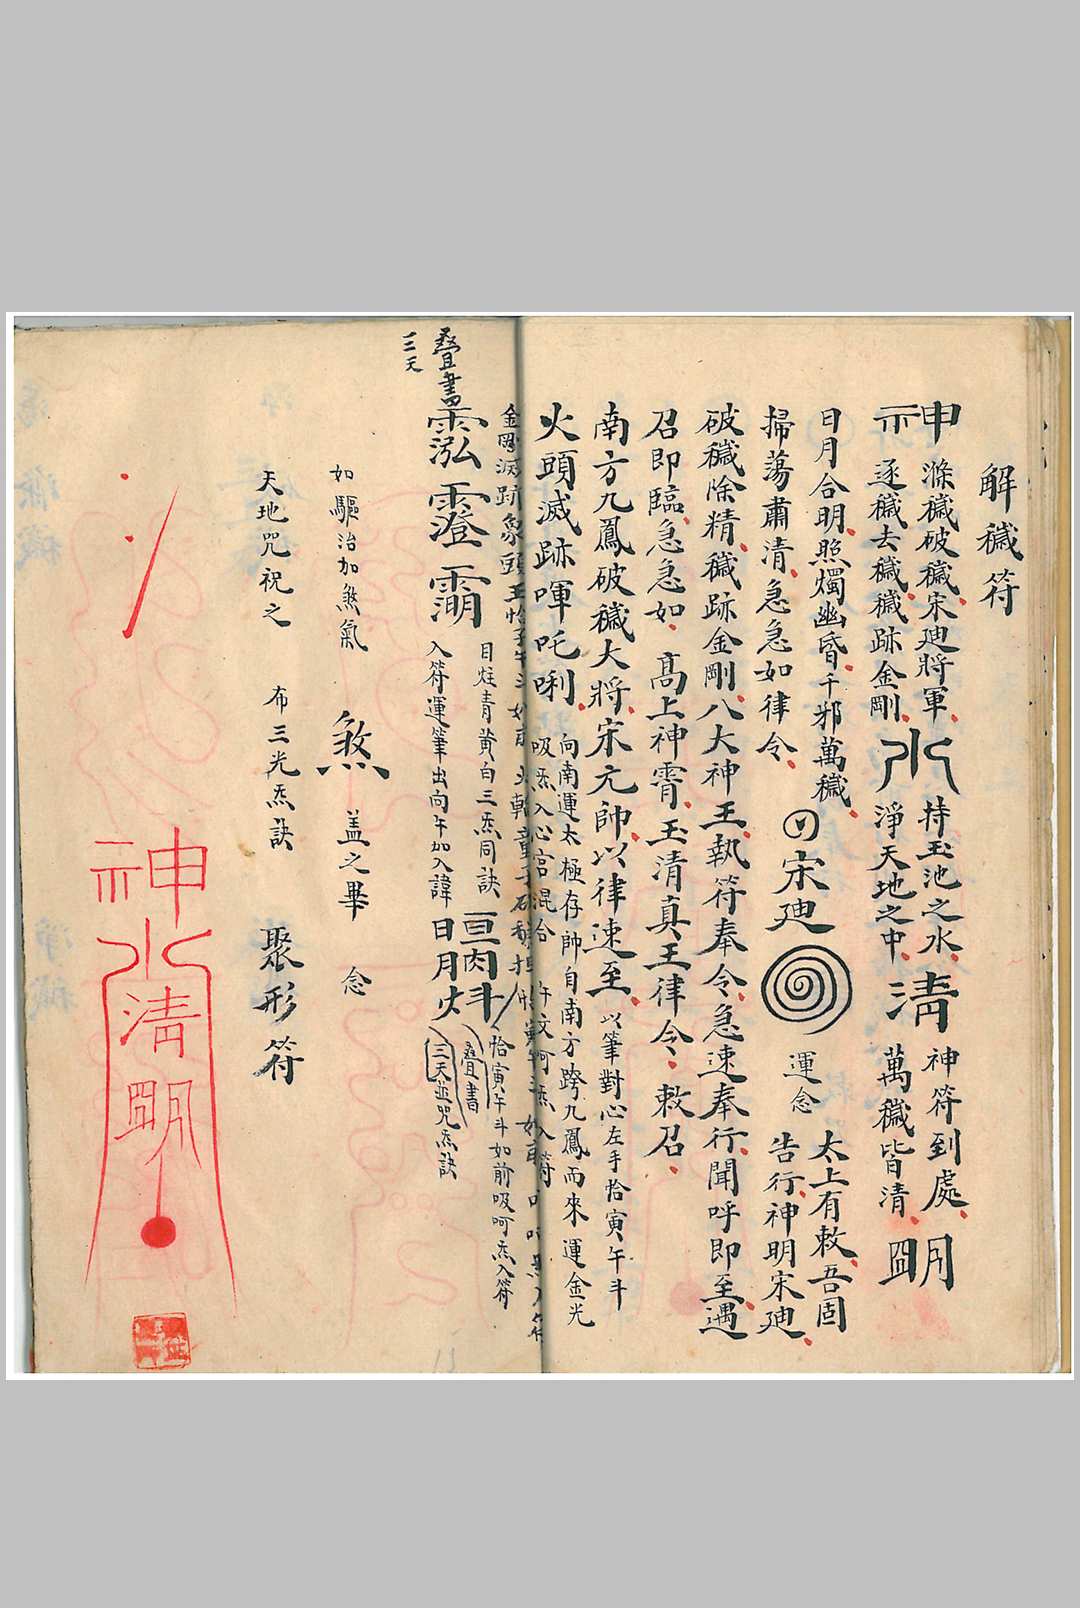 解穢符
神 滌穢破穢宋迪將軍 逐穢去穢穢跡金剛 水 持玉池之水 淨天地之中 清 神符到處 萬穢皆清 明
日月合明照燭幽昏千邪萬穢
掃蕩肅清急急如律令 宋迪 運念 太上有敕吾固
告行神明宋迪
破穢除精穢跡金剛八大神王執符奉令急速奉行聞呼即至遇
召即臨急急如 高上神霄玉清真王律令敕召
南方九鳳破穢大將宋元帥以律速至 以筆對心左手恰寅午斗
火頭滅跡㖶吒唎 向南運太極存帥自南方跨九鳳而來運金光
吸炁入心宮混合 午文呵炁入符
疊書
三天
泓 澄 目炷青黃白三炁同訣
入符運筆出向午加入諱 日月
恰寅午斗如前吸呵炁入符
疊書
三天並咒炁訣
如驅治加煞氣 煞 蓋之畢 念
天地咒祝之 布三光炁訣 聚形符
神
水
清
明